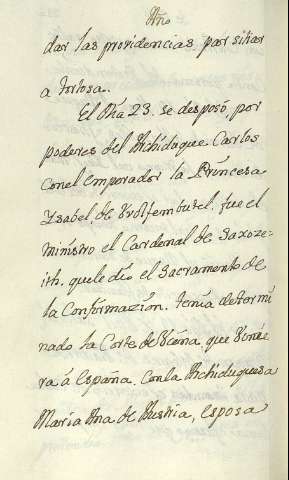 Año
dar las providencias, para sitiar
a tortosa.
El Dia 23. se desposó, por
poderes del Archiduque Carlos
conel emperador la Princesa
Ysabel, de Volfembutel, fue el
ministro el Cardenal de Saxoze=
ith, quele dio el Sacramento de
la Confirmazion. tenia determi
nado la Corte de Viena, que Vinie
ra â españa, Conla Archiduquesa
Maria Ana de Austria, esposa